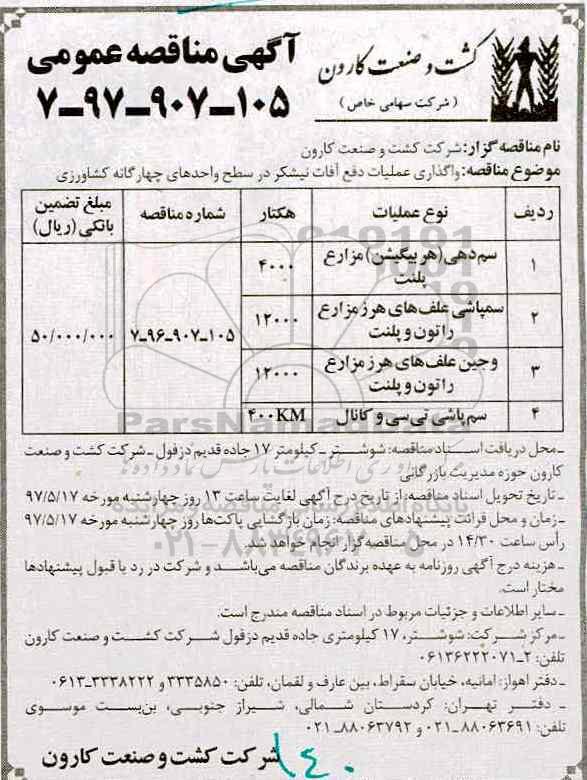 کشت و صنعت کارون
( شرکت سهامی خاص )
آگهی مناقصه عمومی
۷-۹۷-۹۰۷-۱۰۵
نام مناقصه گزار: شرکت کشت و صنعت کارون
موضوع مناقصه: واگذاری عملیات دفع آفات نیشکر در سطح واحدهای چهارگانه کشاورزی
ردیف نوع عملیات هکتار شماره مناقصه مبلغ تضمین بانکی (ریال)
۱ سم‌دهی (هربیگیشن) مزارع پلنت ۴۰۰۰
۲ سمپاشی علف‌های هرز مزارع راتون و پلنت ۱۲۰۰۰ ۷-۹۶-۹۰۷-۱۰۵ ۵۰/۰۰۰/۰۰۰
۳ وجین علف‌های هرز مزارع راتون و پلنت ۱۲۰۰۰
۴ سم پاشی تی سی و کانال ۴۰۰KM
ParsNamadData
ـ محل دریافت اسناد مناقصه: شوشتر ـ کیلومتر ۱۷ جاده قدیم دزفول ـ شرکت کشت و صنعت
کارون حوزه مدیریت بازرگانی
ـ تاریخ تحویل اسناد مناقصه: از تاریخ درج آگهی لغایت ساعت ۱۳ روز چهارشنبه مورخه ۹۷/۵/۱۷
ـ زمان و محل قرائت پیشنهادهای مناقصه: زمان بازگشایی پاکت‌ها روز چهارشنبه مورخه ۹۷/۵/۱۷
رأس ساعت ۱۴/۳۰ در محل مناقصه‌گزار انجام خواهد شد.
ـ هزینه درج آگهی روزنامه به عهده برندگان مناقصه می‌باشد و شرکت در رد یا قبول پیشنهادها
مختار است.
ـ سایر اطلاعات و جزئیات مربوط در اسناد مناقصه مندرج است.
ـ مرکز شرکت: شوشتر، ۱۷ کیلومتری جاده قدیم دزفول شرکت کشت و صنعت کارون
تلفن: ۲-۰۶۱۳۶۲۲۲۰۷۱
ـ دفتر اهواز: امانیه، خیابان سقراط، بین عارف و لقمان، تلفن: ۳۳۳۵۸۵۰ و ۳۳۳۸۲۲۲-۰۶۱۳
ـ دفتر تهران: کردستان شمالی، شیراز جنوبی، بن‌بست موسوی
تلفن: ۸۸۰۶۳۶۹۱-۰۲۱ و ۸۸۰۶۳۷۹۲-۰۲۱
شرکت کشت و صنعت کارون
۱۴۰